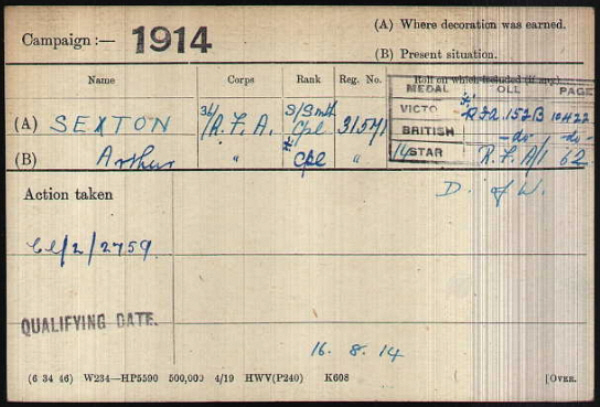 (A) Where decoration was earned.
Campaign :— 1914
(B) Present situation.
Name Corps Rank Reg. No. Roll on which included (if any).
MEDAL OLL PAGE
S/Smith
VICTO 152B 10422
(A) SEXTON 36/R.F.A. Cpl 31541
BRITISH -do- -do-
(B) Arthur " Cpl "
14 STAR R.F.A/1 62
Action taken
D. of W.
/2/2759.
QUALIFYING DATE.
16. 8. 14
(6 34 46) W234—HP5590 500,000 4/19 HWV(P240) K608 [OVER.